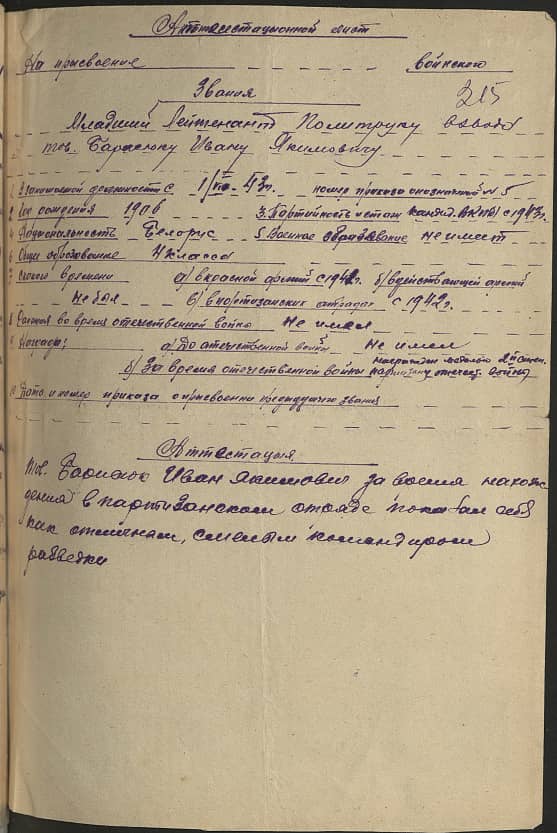 Аттестационной лист
На присвоение воинского
Звания
315
Младший Лейтенант Политруку взвода
тов. Ивану Якимовичу
1 Занимаемой должности с 1/VII-43г. номер приказа о назначении № 5
2 Год рождения 1906 3. Партийность и стаж кандид. ВКП(б) с 1943г.
4 Национальность Белорус 5 Военное образование не имеет
6 Общее образование 4 класса
7 Сколько времени а) в красной армии с 1942г. б) в действующей армии
не был в) в партизанских отрядах с 1942г.
8 во время отечественной войны Не имел
9 Награды: а) До отечественной войны Не имел
б) За время отечественной войны награжден медалью 2й степ. партизану отечест. войны
10 Дата и номер приказа о присвоении предыдущего звания
Аттестация
Тов. Иван Якимович за время нахож-
дения в партизанском отряде показал себя
как отличным, смелым командиром
разведки